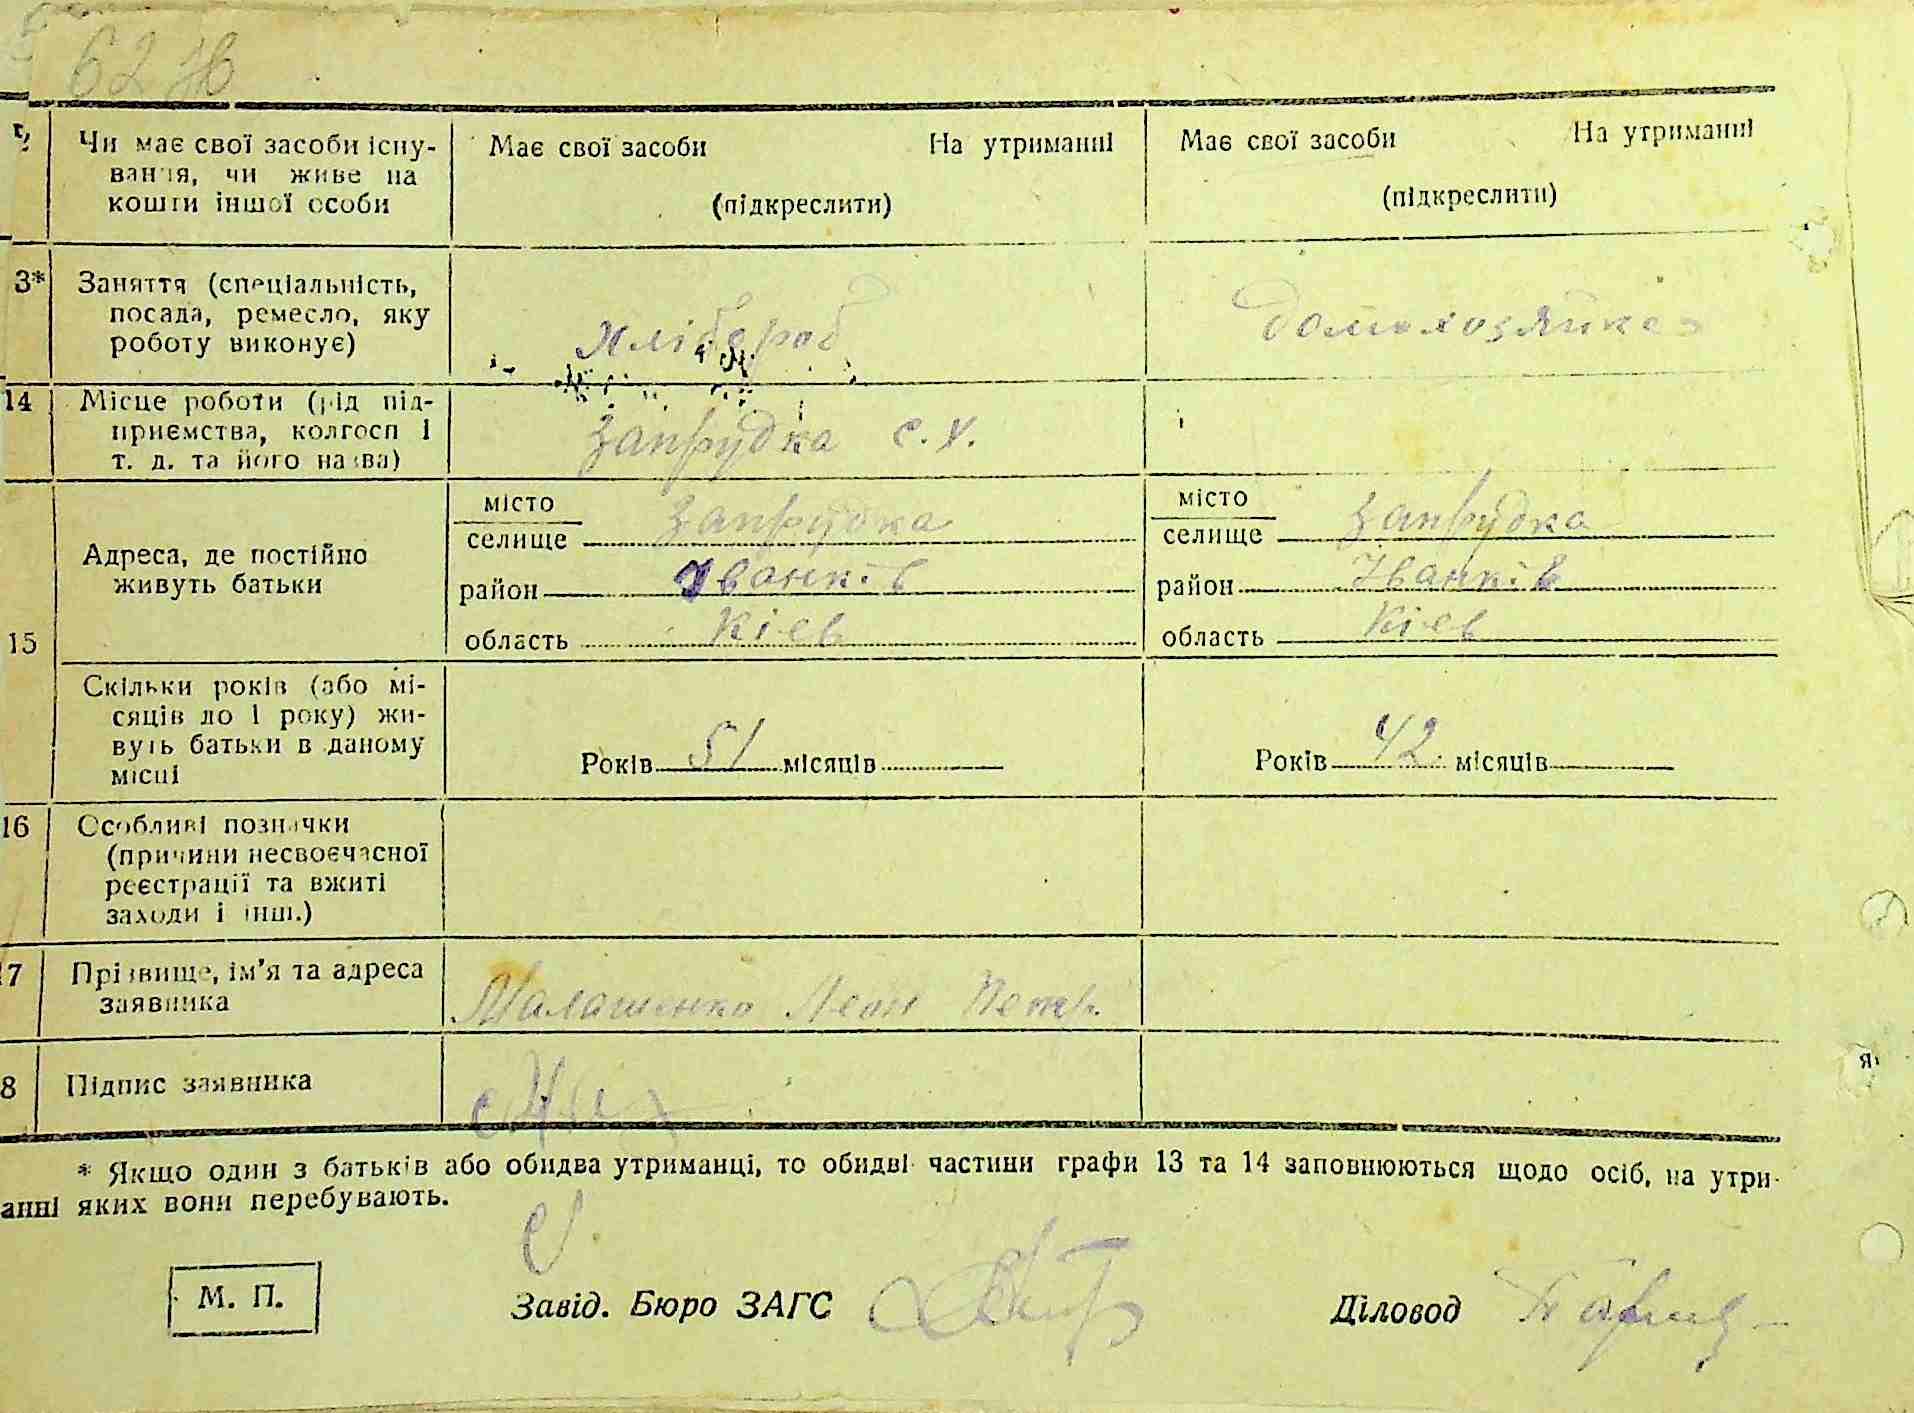 62 ж
Чи має свої засоби існу-
вання, чи живе на
кошти іншої особи
Має свої засоби На утриманні
(підкреслити)
Має свої засоби На утриманні
(підкреслити)
3*
Заняття (спеціальність,
посада, ремесло, яку
роботу виконує)
хлібороб
домохозяйка
14
Місце роботи (рід під-
приємства, колгосп і
т. д. та його назва)
Запрудка с.х.
15
Адреса, де постійно
живуть батьки
місто
селище Запрудка
район Іванків
область Кіев
місто
селище Запрудка
район Іванків
область Кіев
Скільки років (або мі-
сяців до 1 року) жи-
вуть батьки в даному
місці
Років 51 місяців
Років 42 місяців
16
Особливі позначки
(причини несвоєчасної
реєстрації та вжиті
заходи і інш.)
17
Прізвище, ім'я та адреса
заявника
Малашенко Леон Петр.
8
Підпис заявника
* Якщо один з батьків або обидва утриманці, то обидві частини графи 13 та 14 заповнюються щодо осіб, на утри-
анні яких вони перебувають.
М. П.
Завід. Бюро ЗАГС
Діловод